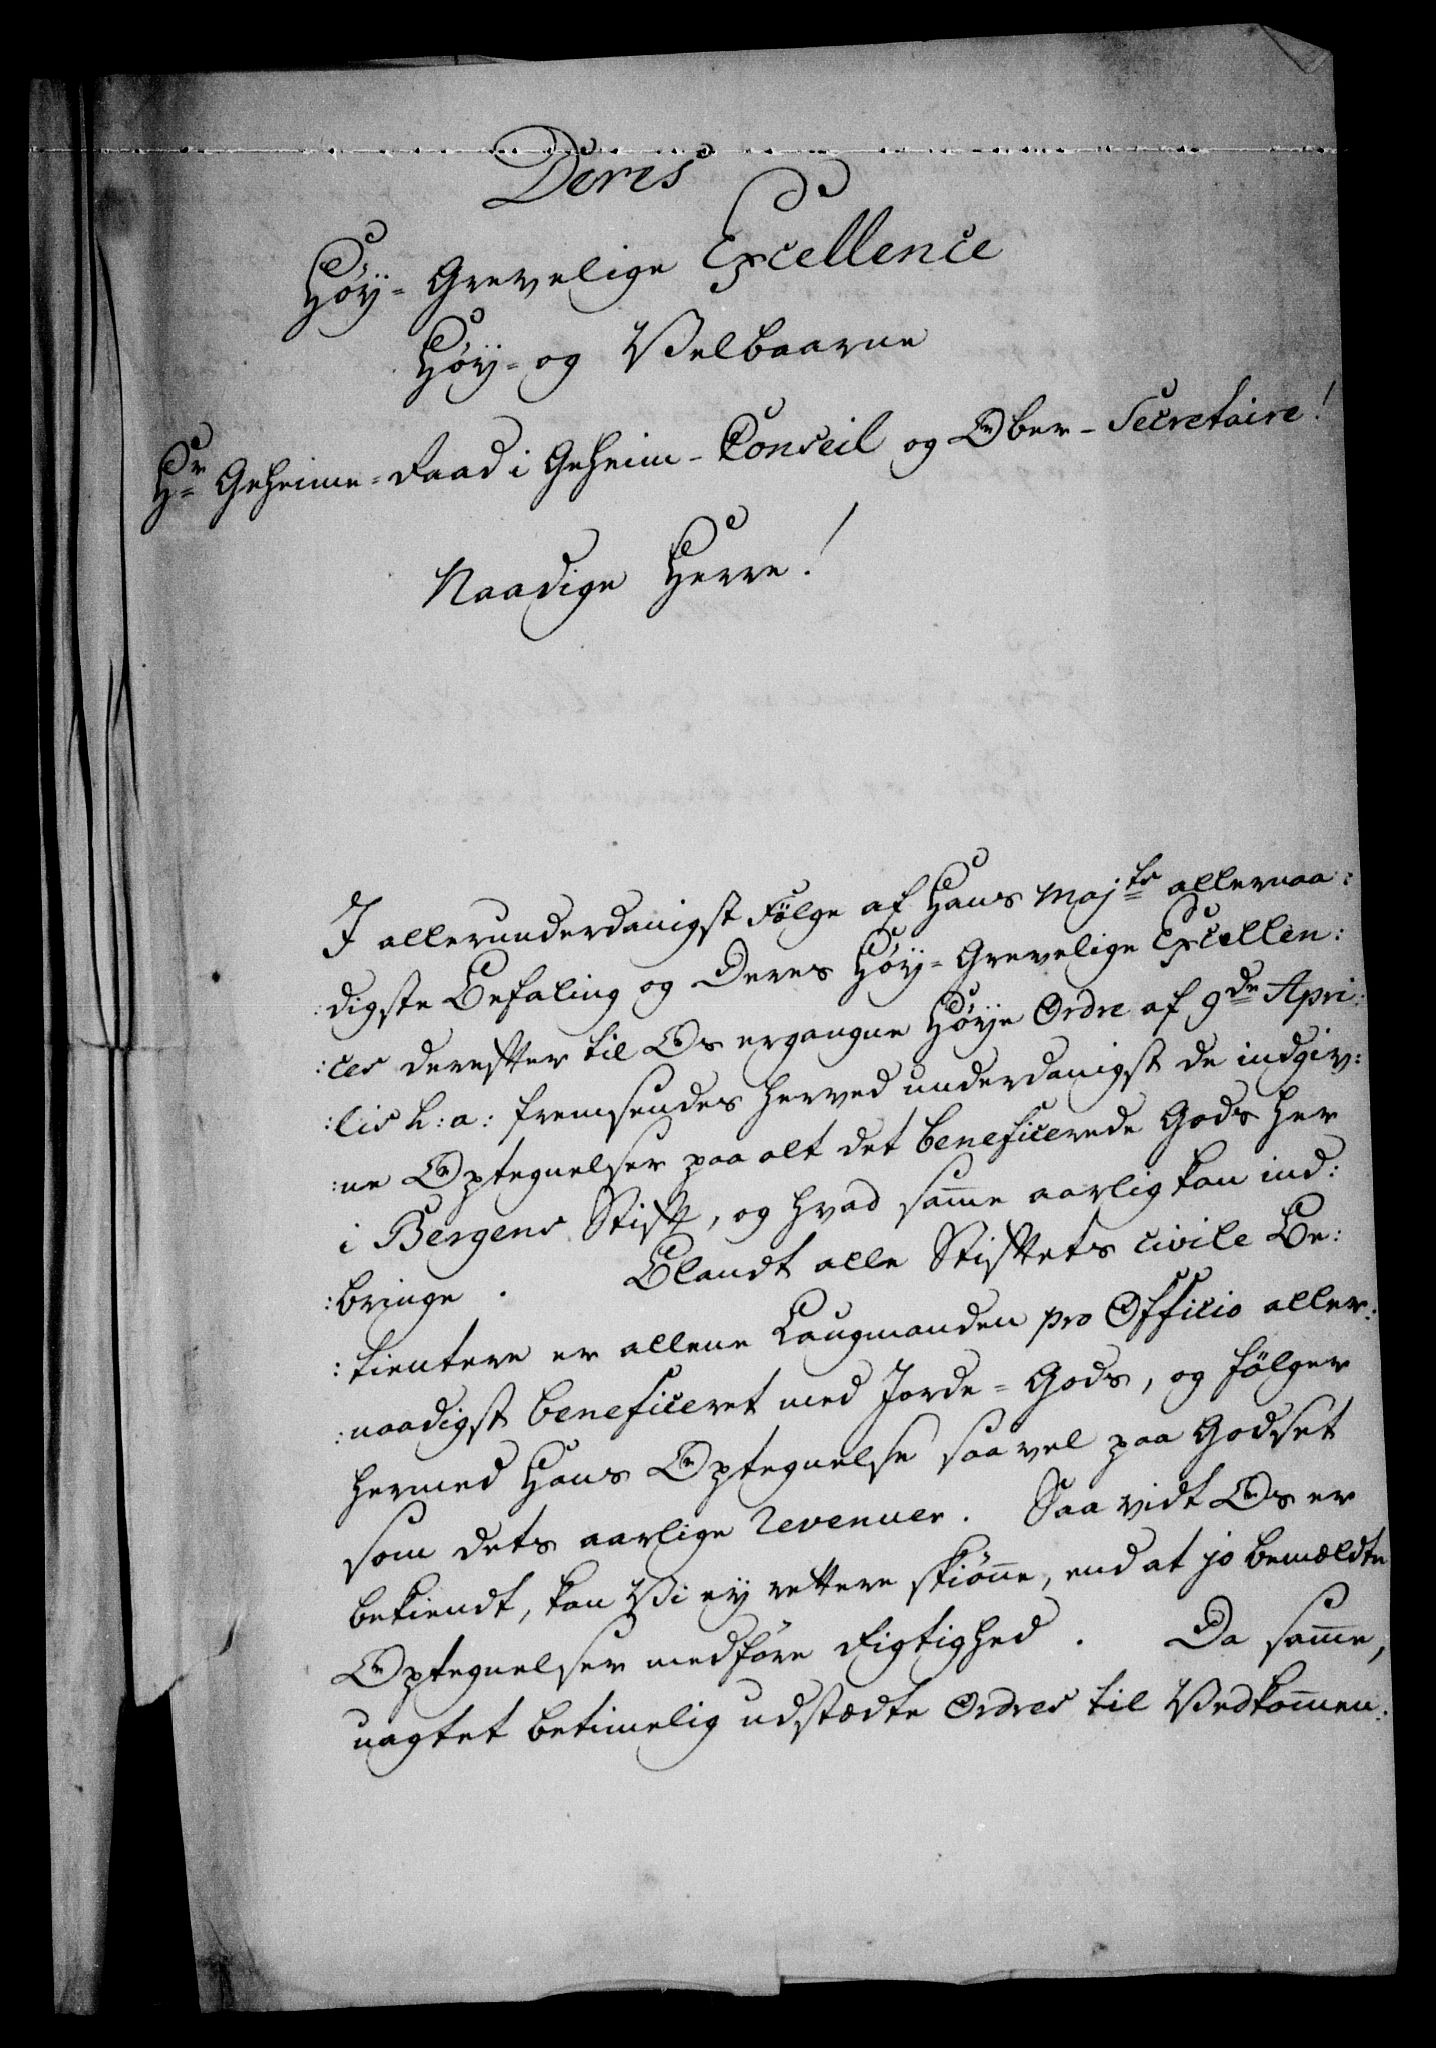 Deres
Høy- Grevelige Excellence
Høy- og Velbaarne
Hr Geheime-Raad i Geheim-Conseil og Ober-Secretaire!
Naadige Herre!
I allerunderdanigst Følge af Hans Majts allernaa:
:digste Befaling og Deres Høy-Grevelige Excellen:
:ces derefter til Os ergangne Høye Ordre af 9de Apri:
:lis h: a: fremsendes herved underdanigst de indgiv:
:ne Optegnelser paa alt det beneficerede Gods her
i Bergens Stift, og hvad sam̅e aarlig kan ind:
:bringe. Blandt alle Stiftets civile Be:
:tientere er allene Laugmanden pro Officio aller:
:naadigst beneficeret med Jorde-Gods, og følger
hermed Hans Optegnelse saavel paa Godset
som dets aarlige Revenuer. Saa vidt Os er
bekiendt, kan Vi ey rettere skiøn̅e, end at jo bemældte
Optegnelser medføre Rigtighed. Da sam̅e,
uagtet betimelig udstædte Ordres til Vedkom̅en: